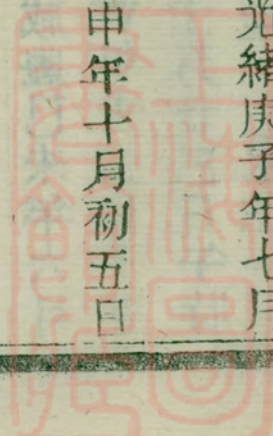 光緒庚子年七月
申年十月初五日